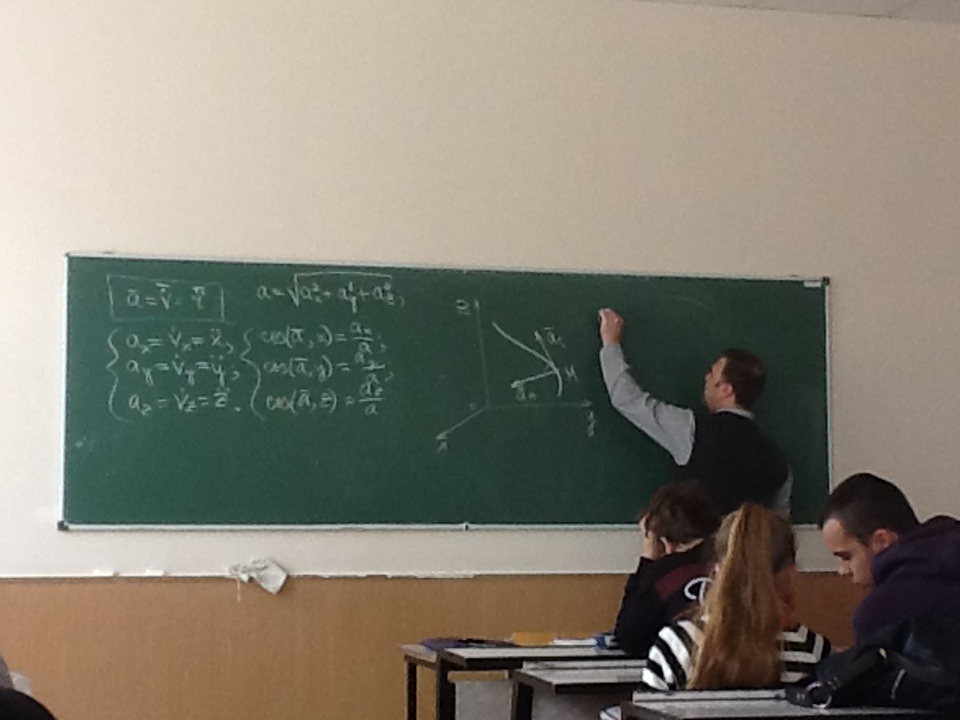 ā = v̄̇ = r̄̈
a = √(aₓ² + a_y² + a_z²),
aₓ = v̇ₓ = ẍ,
a_y = v̇_y = ÿ,
a_z = v̇_z = z̈.
cos(ā, x) = aₓ/a,
cos(ā, y) = a_y/a,
cos(ā, z) = a_z/a
z
ā_τ
M
ā_n
y
x